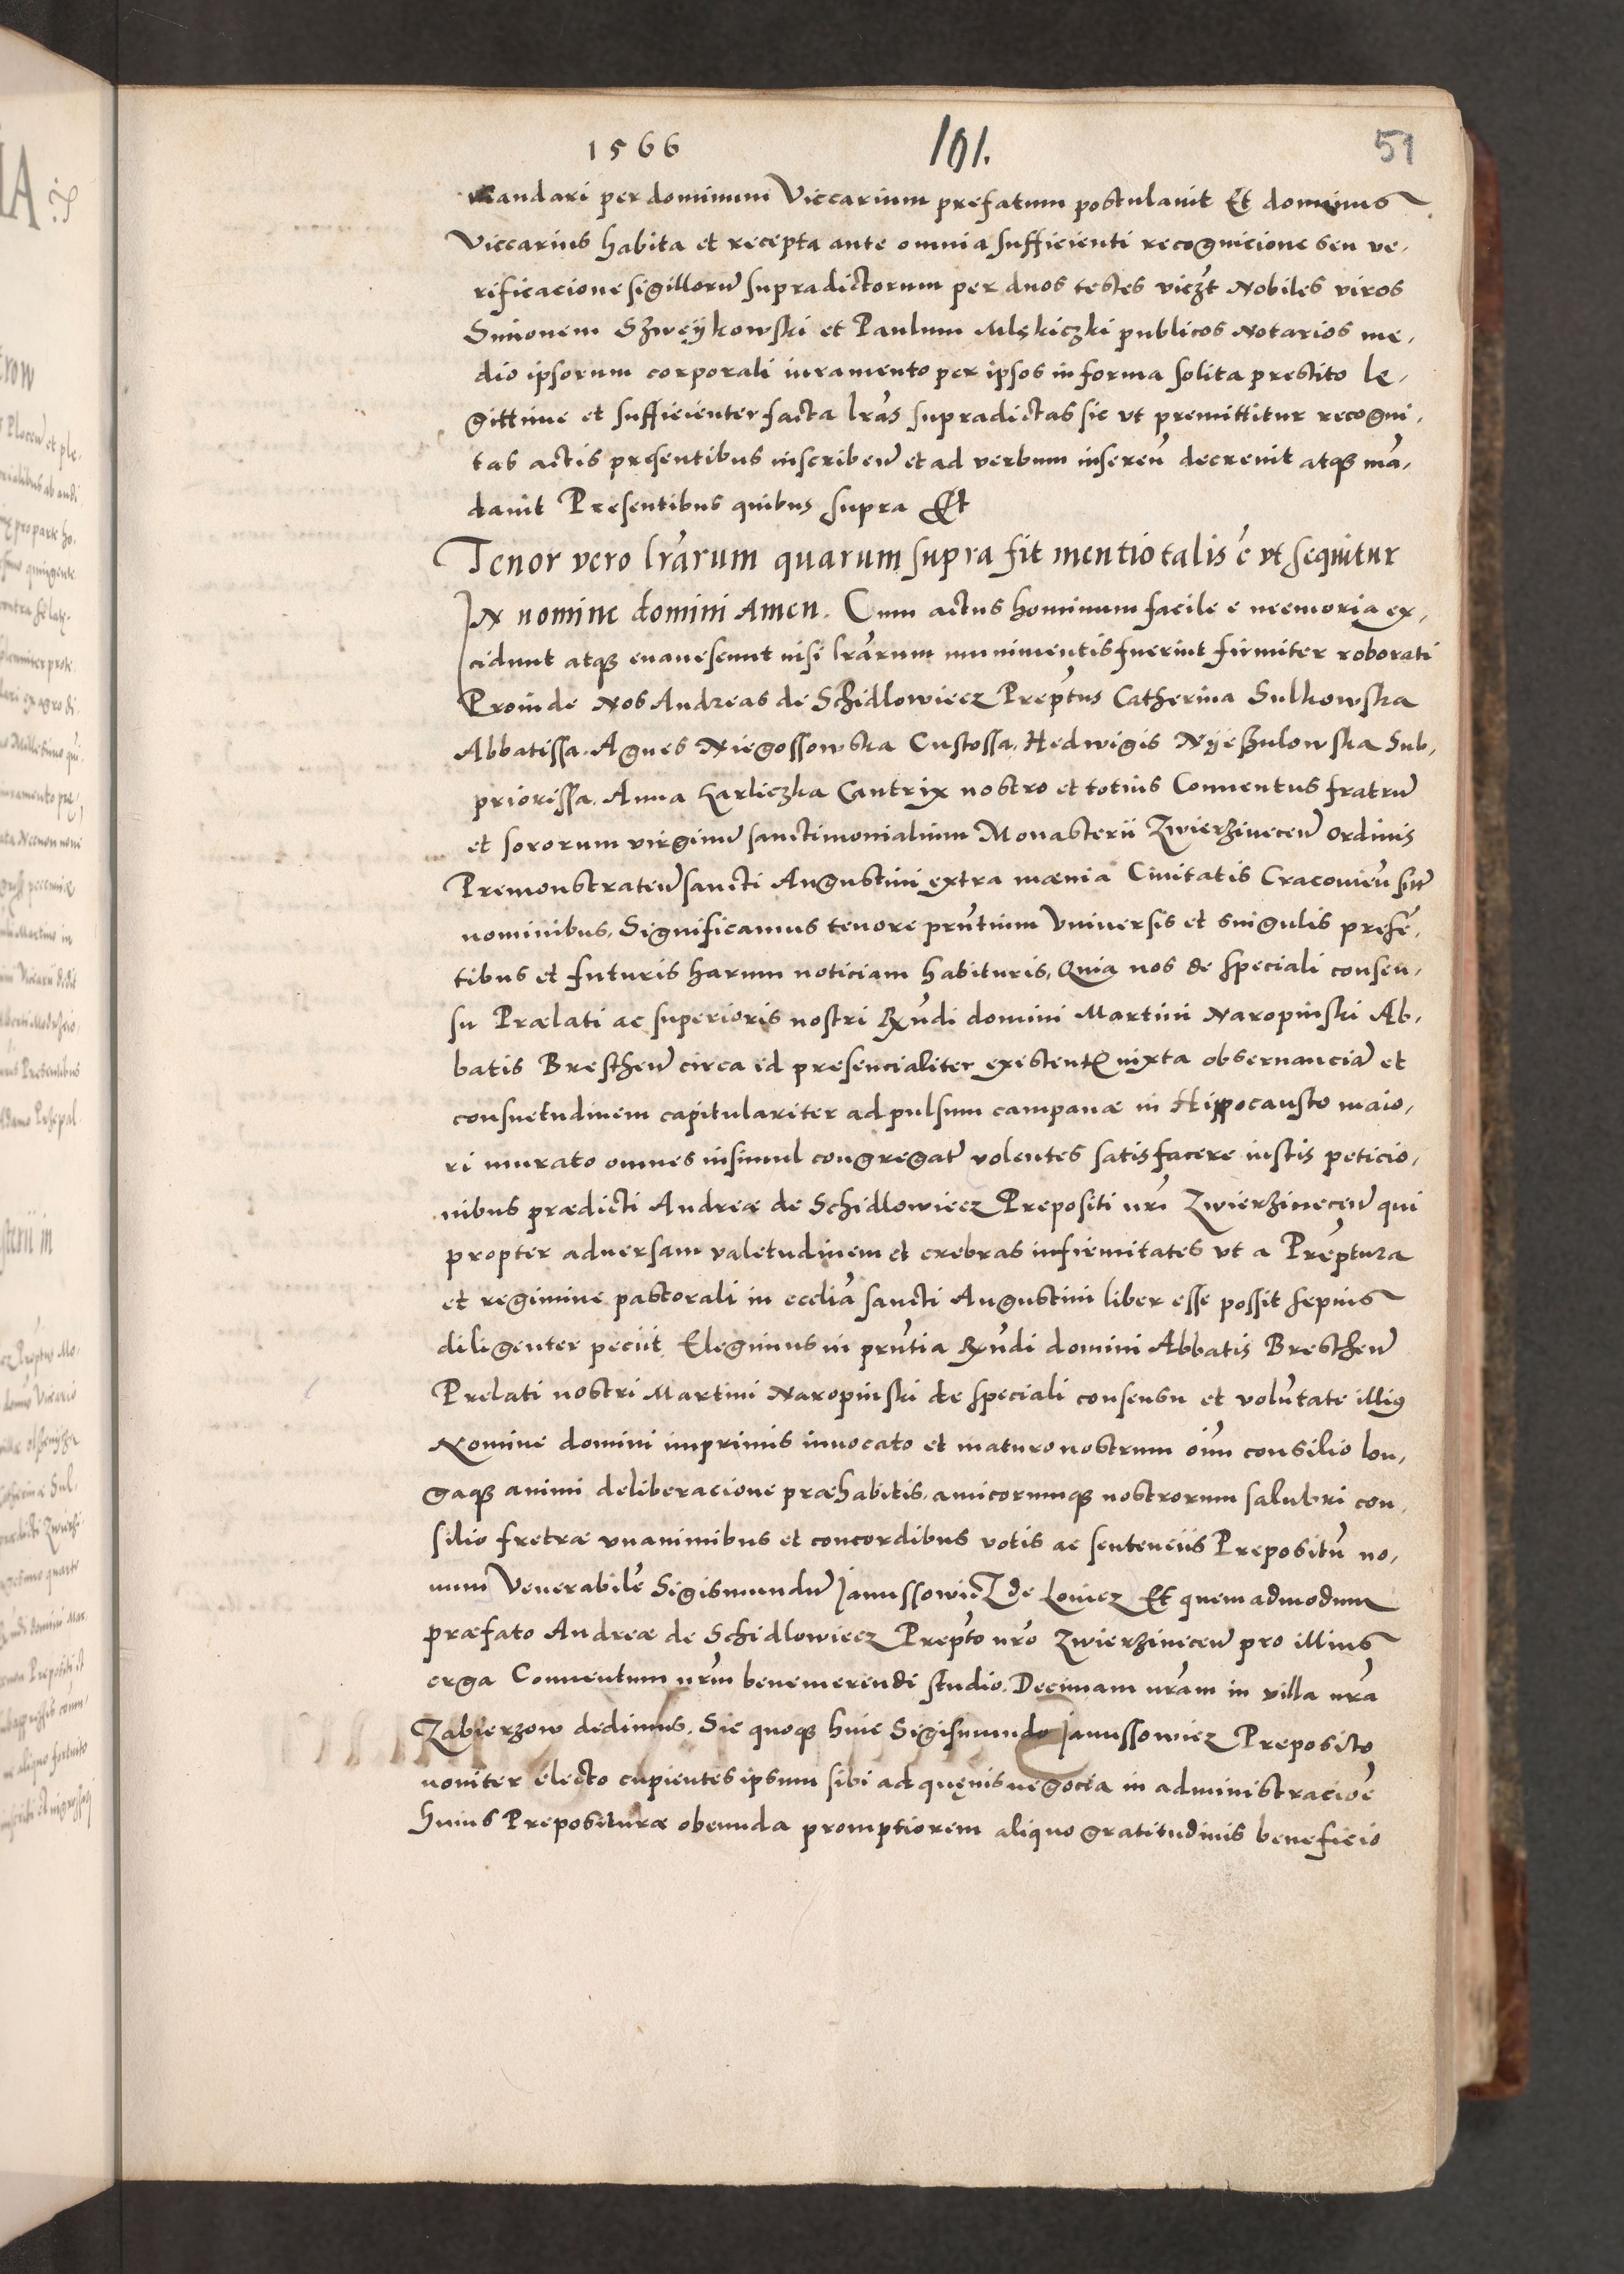 1566 101. 51
mandari per dominum Viccarium prefatum postulavit Et dominus
Viccarius habita et recepta ante omnia sufficienti recognicione seu ve-
rificacione sigilloru̅ supradictorum per duos testes viczt Nobiles viros
Simonem Szweÿkowski et Paulum Mlękiczki publicos Notarios me-
dio ipsorum corporali iuramento per ipsos in forma solita prestito le-
gittime et sufficienter facta l̅ras supradictas sic vt premittitur recogni-
tas actis presentibus inscriben̅ et ad verbum inseren̅ decrevit atq₃ ma̅-
davit Presentibus quibus supra Et
Tenor vero l̅rarum quarum supra fit mentio talis e̅ vt sequitur
IN nomine domini Amen. Cum actus hominum facile e memoria ex-
cidunt atq₃ evanescunt nisi l̅rarum munimentis fuerint firmiter roborati
Proinde Nos Andreas de Schidlowiecz Prep̅tus Catherina Sulkowska
Abbatissa. Agnes Niegossowska Custossa. Hedwigis Nÿeszulowska Sub-
priorissa. Anna Karliczka Cantrix nostro et totius Conventus fratru̅
et sororum virginu̅ sanctimonialium Monasterii Zwierzinecen̅ ordinis
Premonstraten̅ sancti Augustini extra mœnia Civitatis Cracovien̅ siti̅
nominibus. Significamus tenore prn̅tium Vniversis et singulis prese̅-
tibus et futuris harum noticiam habituris. Quia nos de speciali consen-
su Prælati ac superioris nostri Rn̅di domini Martini Naropinski Ab-
batis Bresthen̅ circa id presencialiter existentis iuxta observancia̅ et
consuetudinem capitulariter ad pulsum campanæ in Hippocausto maio-
ri murato omnes insimul congregati volentes satisfacere iustis peticio-
nibus prædicti Andreæ de Schidlowiecz Prepositi nr̅i Zwierzinecen̅ qui
propter adversam valetudinem et crebras infirmitates vt a Prep̅tura
et regimine pastorali in eccli̅a sancti Augustini liber esse possit sepius
diligenter peciit Elegimus in prn̅tia Rn̅di domini Abbatis Bresthen̅
Prelati nostri Martini Naropinski de speciali consensu et volu̅tate illius
Nomine domini imprimis invocato et maturo nostrum oi̅m consilio lon-
gaq₃ animi deliberacione præhabitis. amicorumq₃ nostrorum salubri con-
silio fretæ vnanimibus et concordibus votis ac sentenciis Prepositu̅ no-
vum Venerabile̅ Sigismundu̅ Janussowicz de Lovicz Et quemadmodum
præfato Andreæ de Schidlowiecz Prep̅to nr̅o Zwierzinecen̅ pro illius
erga Conventum nr̅m benemerendi studio. Decimam nr̅am in villa nr̅a
Zabierzow dedimus. Sic quoq₃ huic Sigismundo Janussowicz Preposito
noviter electo cupientes ipsum sibi ad quęvis negocia in administracio̅e
huius Prepositurae obeunda promptiorem aliquo gratitudinis beneficio